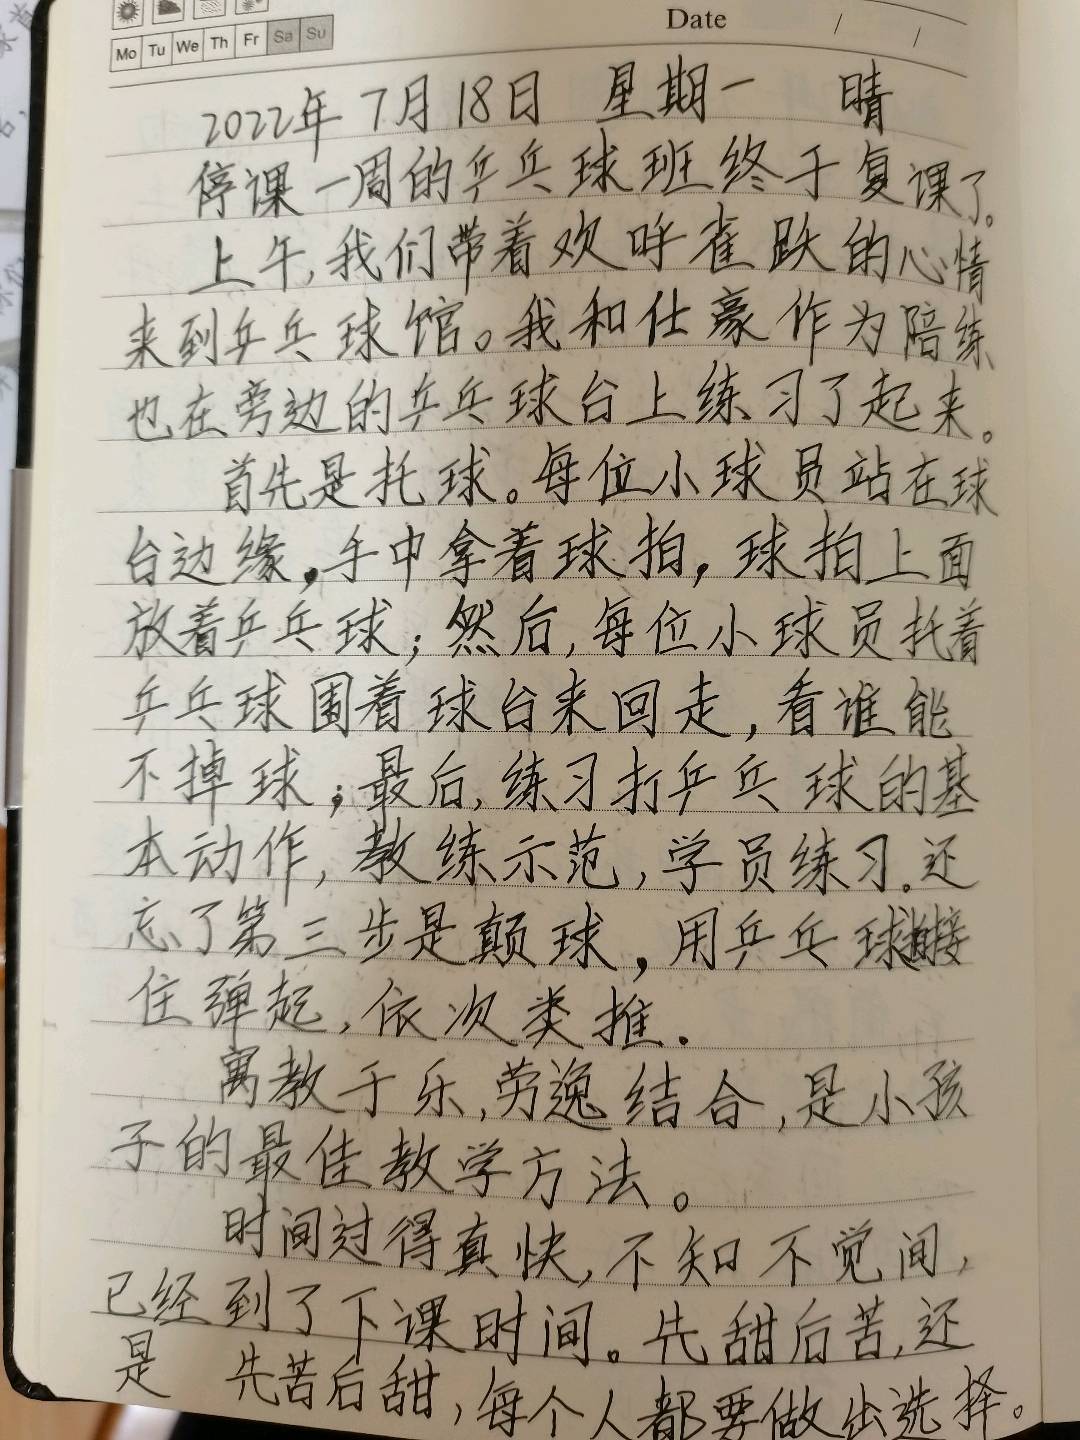 Date / /
Mo Tu We Th Fr Sa Su
2022年7月18日 星期一 晴
停课一周的乒乓球班终于复课了。
上午,我们带着欢呼雀跃的心情
来到乒乓球馆。我和仕豪作为陪练
也在旁边的乒乓球台上练习了起来。
首先是托球。每位小球员站在球
台边缘,手中拿着球拍,球拍上面
放着乒乓球;然后,每位小球员托着
乒乓球围着球台来回走,看谁能
不掉球;最后,练习打乒乓球的基
本动作,教练示范,学员练习。还
忘了第三步是颠球,用乒乓球接
住弹起,依次类推.
寓教于乐,劳逸结合,是小孩
子的最佳教学方法。
时间过得真快,不知不觉间,
已经到了下课时间。先甜后苦,还
是 先苦后甜,每个人都要做出选择。